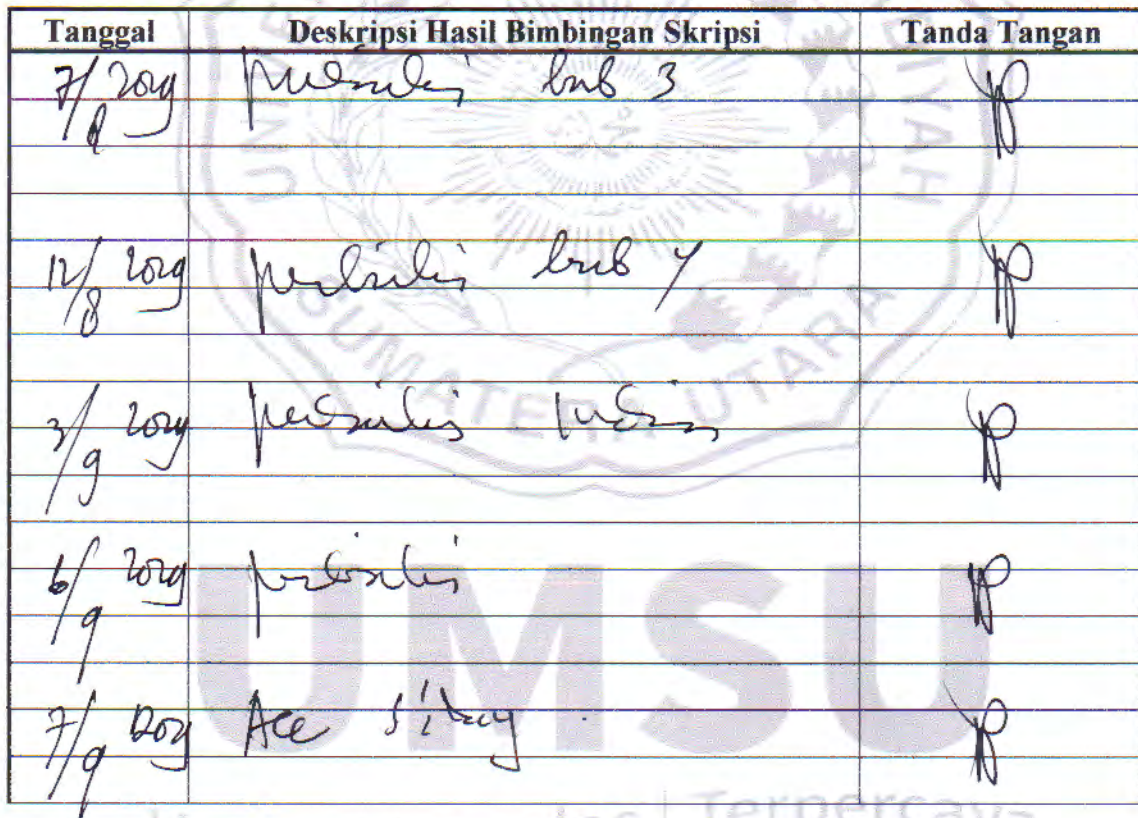 Tanggal Deskripsi Hasil Bimbingan Skripsi Tanda Tangan
7/8 2024 perbaiki bab 3
12/8 2024 perbaiki bab 4
3/9 2024 perbaiki
6/9 2024 perbaiki
7/9 2024 Acc sidang
UNIVE DIYAH
SUMATERA UTARA
UMSU
Terpercaya